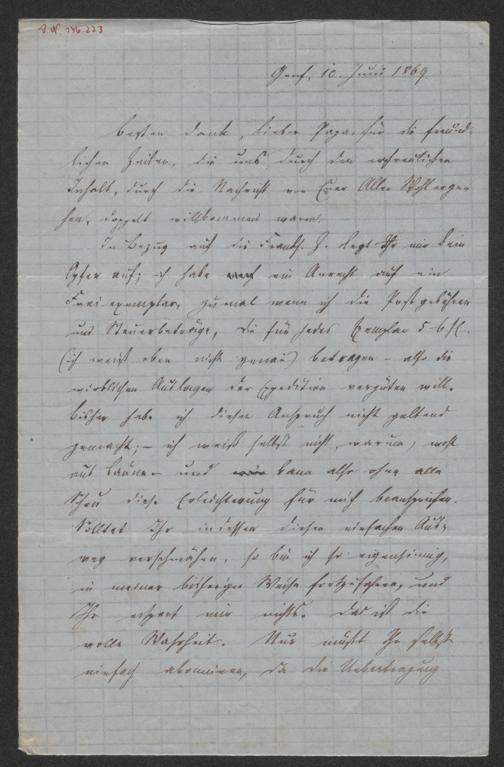 J. N. 146.223
Genf, 10. Juni 1869.
Besten Dank, lieber Papa, für die freund-
lichen Zeilen, die uns durch den erfreulichen
Inhalt, durch die Nachricht von Euer Aller Wohlerge-
hen, doppelt willkommen waren.
In Bezug auf die Frankf. Z. legt Ihr mir kein
Opfer auf; ich habe ein Anrecht auf ein
Freiexemplar, zumal wenn ich die Postgebühren
und Steuerbeträge, die für jedes Exemplar 5-6 fl.
(ich weiß eben nicht genau) betragen - also die
wirklichen Auslagen der Expedition vergüten will.
Bisher habe ich diesen Anspruch nicht geltend
gemacht; - ich weiß selbst nicht, warum, wohl
aus Laune - und kann also ohne alle
Scheu diese Erleichterung für mich beanspruchen.
Solltet Ihr indessen diesen einfachen Aus-
weg verschmähen, so bin ich so eigensinnig,
in meiner bisherigen Weise fortzufahren, und
Ihr erspart mir nichts. Das ist die
volle Wahrheit. Nur müßt Ihr selbst
einfach abonniren, da die Uebertragung